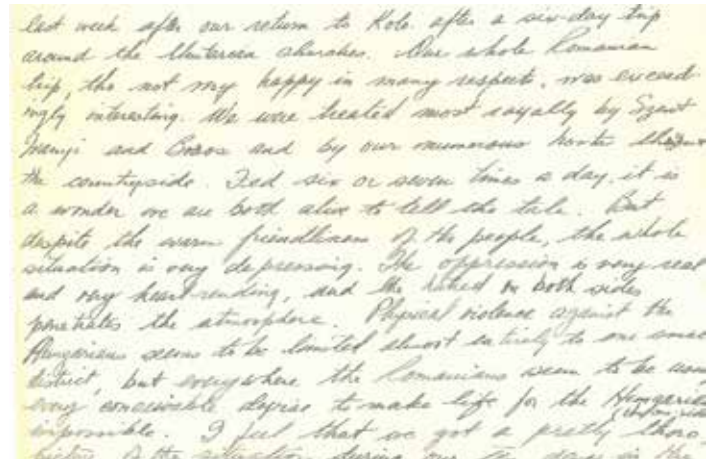 last week after our return to Kolo. after a six-day trip
around the Unitarian churches. Our whole Romanian
trip, tho not very happy in many respects, was exceed-
ingly interesting. We were treated most royally by Szent
Ivanyi and Boros and by our numerous hosts
the countryside. Fed six or seven times a day, it is
a wonder we are both alive to tell the tale. But
despite the warm friendliness of the people, the whole
situation is very depressing. The oppression is very real
and very heart-rending, and the hatred on both sides
penetrates the atmosphere. Physical violence against the
Hungarians seems to be limited almost entirely to one
district, but everywhere the Romanians seem to be
every conceivable device to make life for the
impossible. I feel that we got a pretty
of the situation during our in the